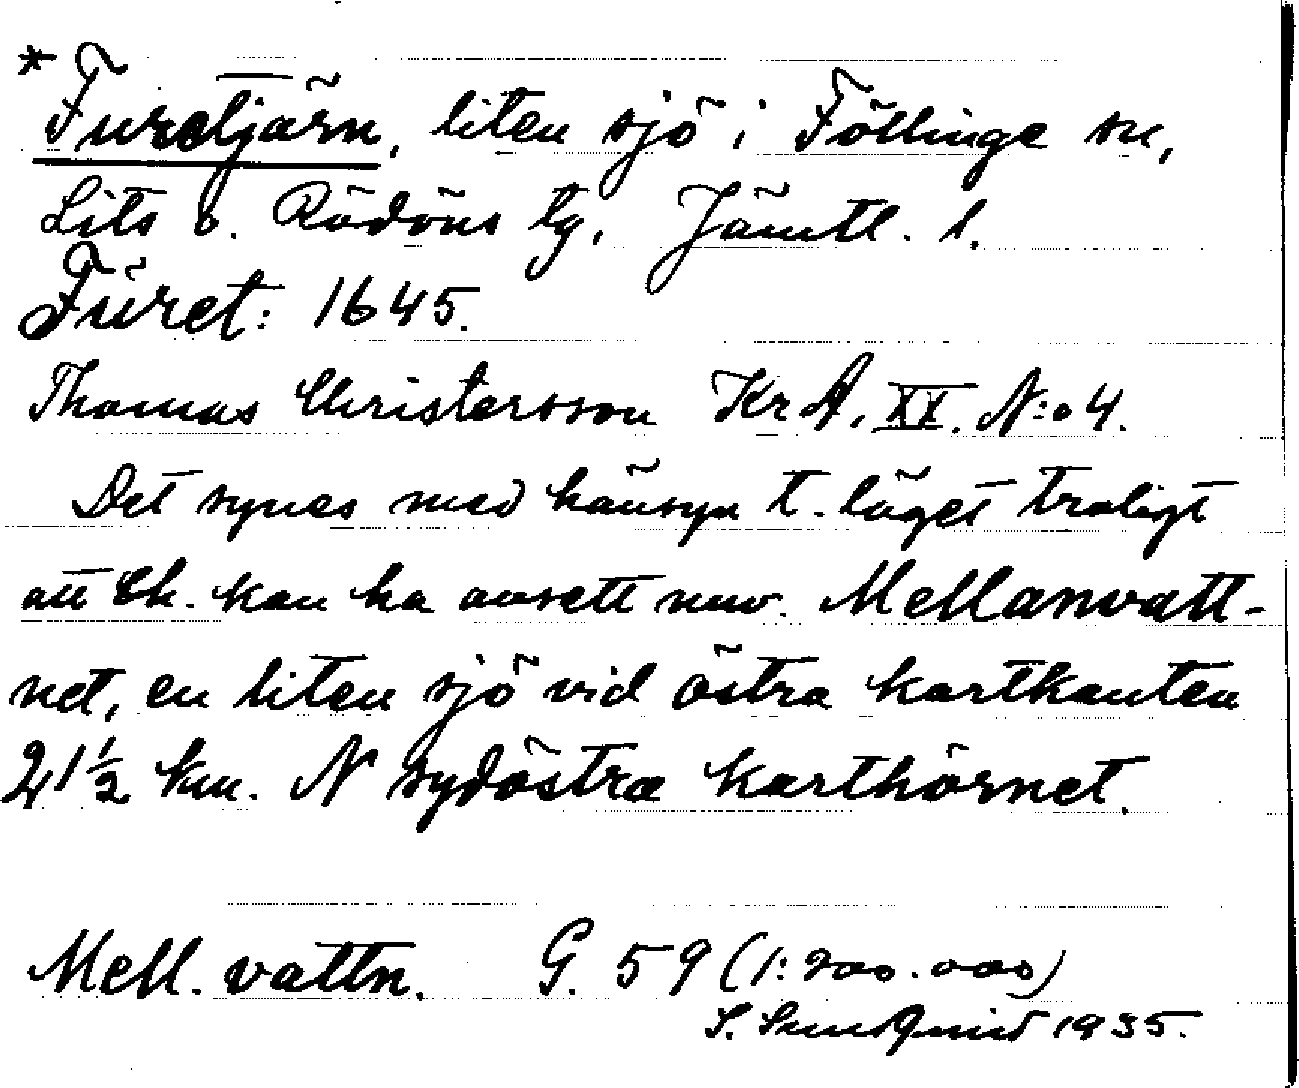 * Furetjärn, liten sjö i Föllinge sn,
Lits o. Rödöns tg, Jämtl. l.
Füret: 1645.
Thomas Christersson KrA. XX. N:o 4.
Det synes med hänsyn t. läget troligt
att Ch. kan ha avsett nuv. Mellanvatt-
net, en liten sjö vid östra kartkanten
21½ km. N sydöstra karthörnet.
Mell. vattn. G. 59 (1:200.000)
S. Sundqvist 1935.